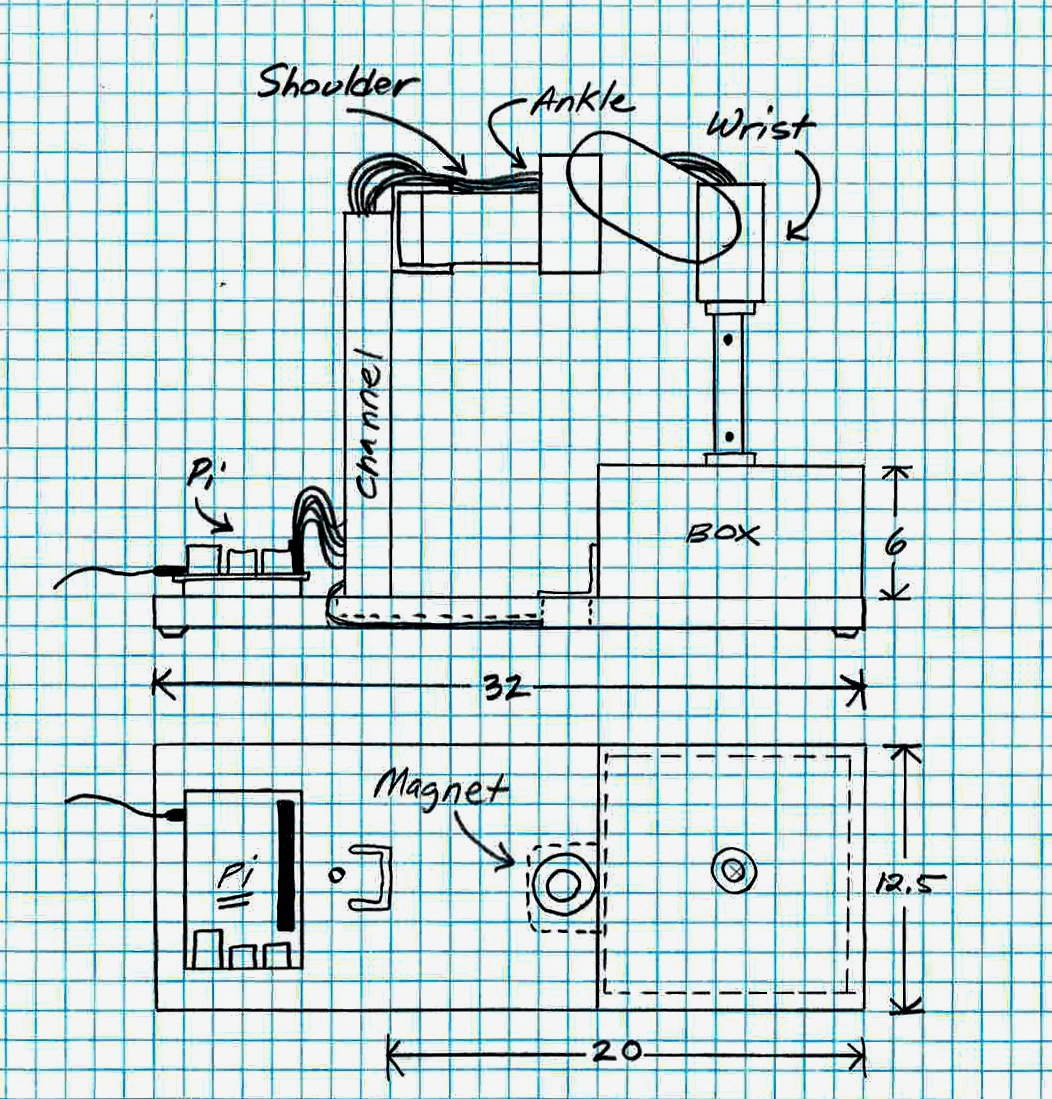 Shoulder
Ankle
Wrist
Channel
Pi
BOX
6
32
Magnet
Pi
12.5
20